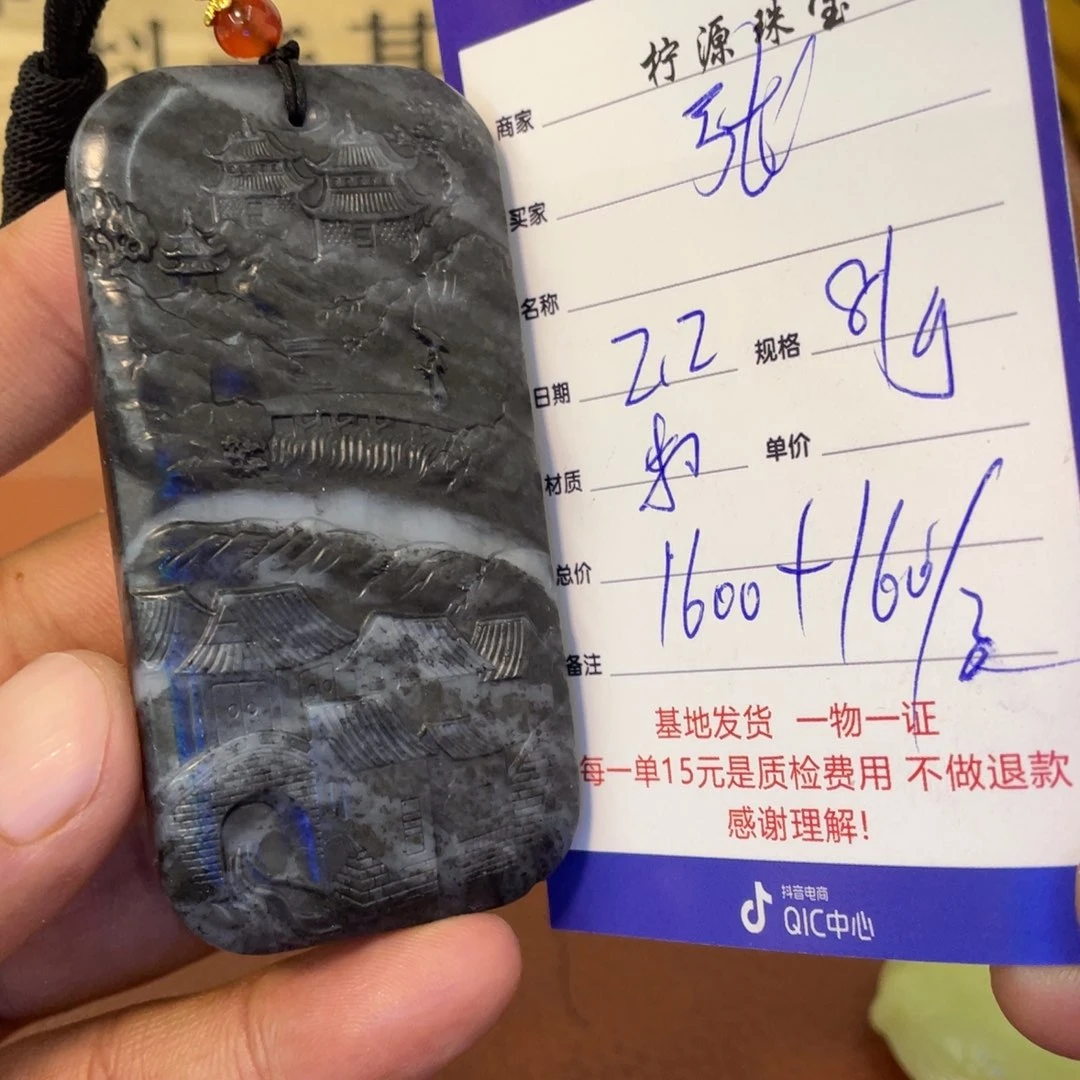 抖音基
商家 柠源珠宝
买家 张
名称
日期 2.2 规格 81g
材质
单价
总价 1600+160/
备注
基地发货 一物一证
每一单15元是质检费用 不做退款
感谢理解!
抖音电商
QIC中心